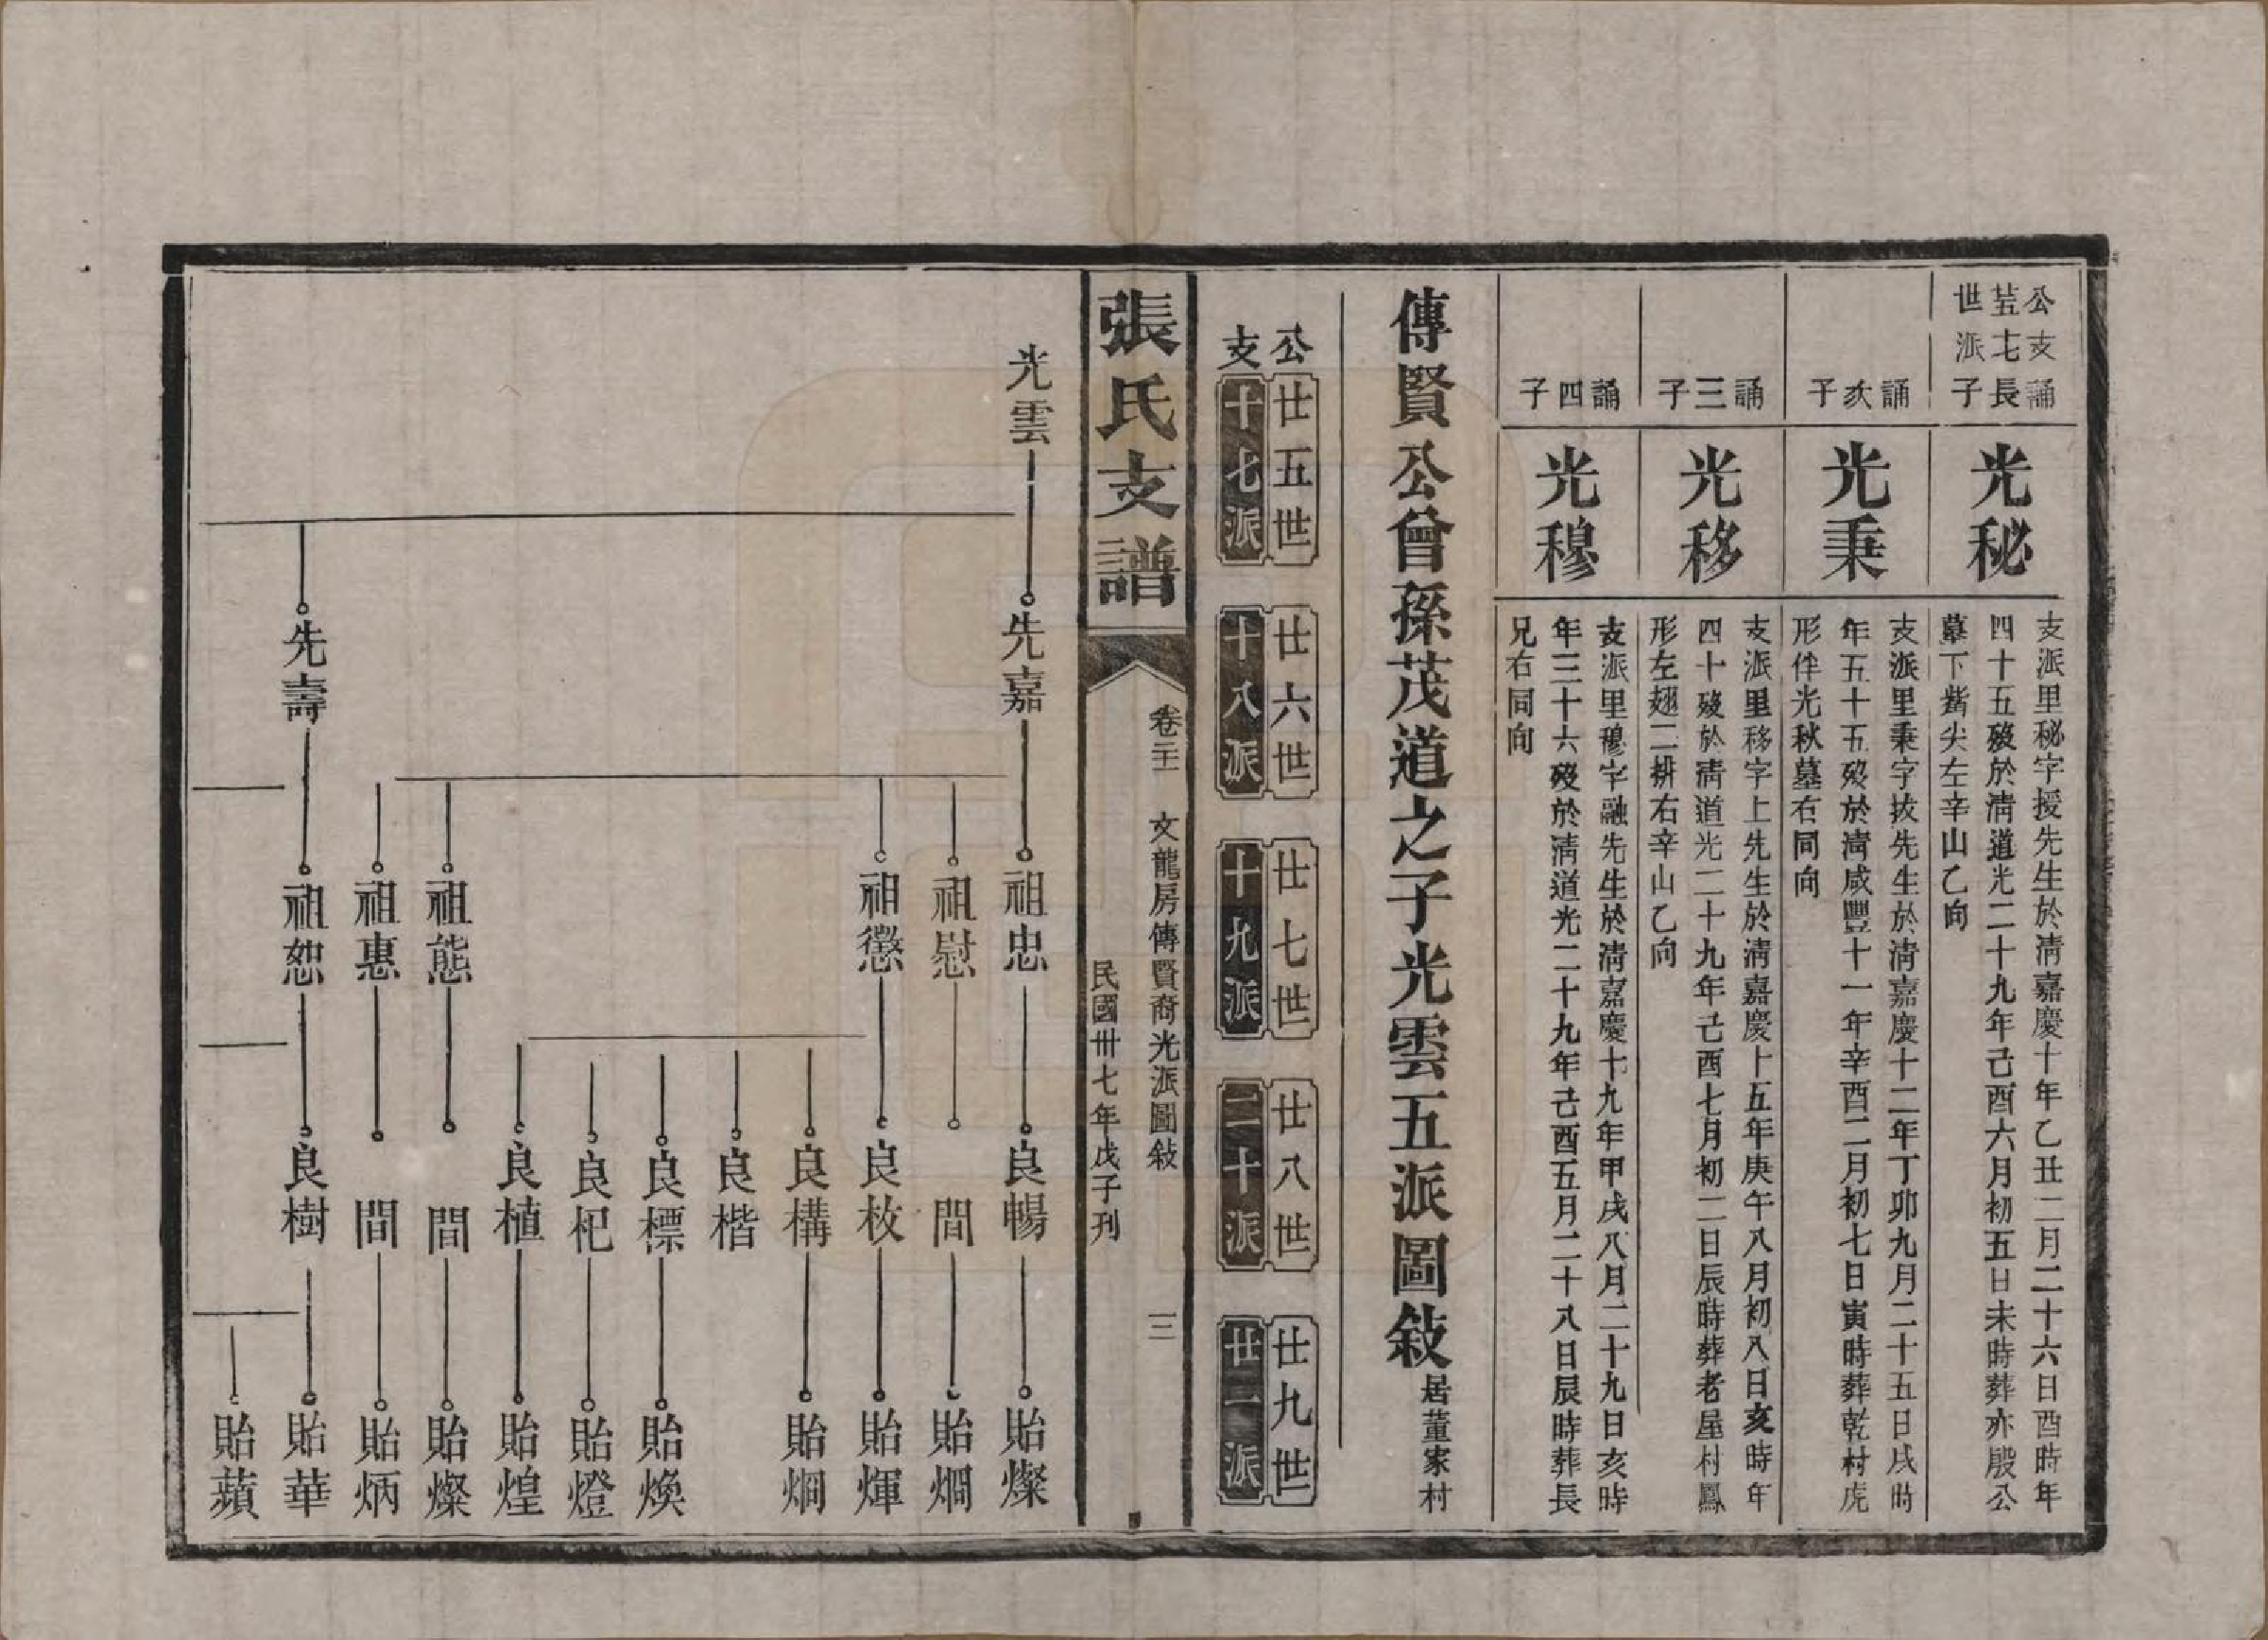 公支誦
廿五七長
世派子
光秘
支派里秘字援先生於淸嘉慶十年乙丑二月二十六日酉時年
四十五歿於淸道光二十九年己酉六月初五日未時葬亦殷公
墓下觜尖左辛山乙向
誦次子
光秉
支派里秉字拔先生於淸嘉慶十二年丁卯九月二十五日戌時
年五十五歿於淸咸豐十一年辛酉二月初七日寅時葬乾村虎
形伴光秋墓右同向
誦三子
光移
支派里移字上先生於淸嘉慶十五年庚午八月初八日亥時年
四十歿於淸道光二十九年己酉七月初二日辰時葬老屋村鳳
形左翅二排右辛山乙向
誦四子
光穆
支派里穆字融先生於淸嘉慶十九年甲戌八月二十九日亥時
年三十六歿於淸道光二十九年己酉五月二十八日辰時葬長
兄右同向
傳賢公曾孫茂道之子光雲五派圖敍 居董家村
公 廿五世 廿六世 廿七世 廿八世 廿九世
支 十七派 十八派 十九派 二十派 廿一派
張氏支譜
卷三十一 文龍房傳賢裔光派圖敍 三
民國卅七年戊子刊
光雲
先嘉 祖忠 良暢 貽燦
祖慰 間 貽燗
祖懲 良枚 貽煇
良構 貽燗
良楷
良標 貽煥
良杞 貽燈
良植 貽煌
祖態 間 貽燦
祖惠 間 貽炳
先壽 祖恕 良樹 貽華
貽蘋